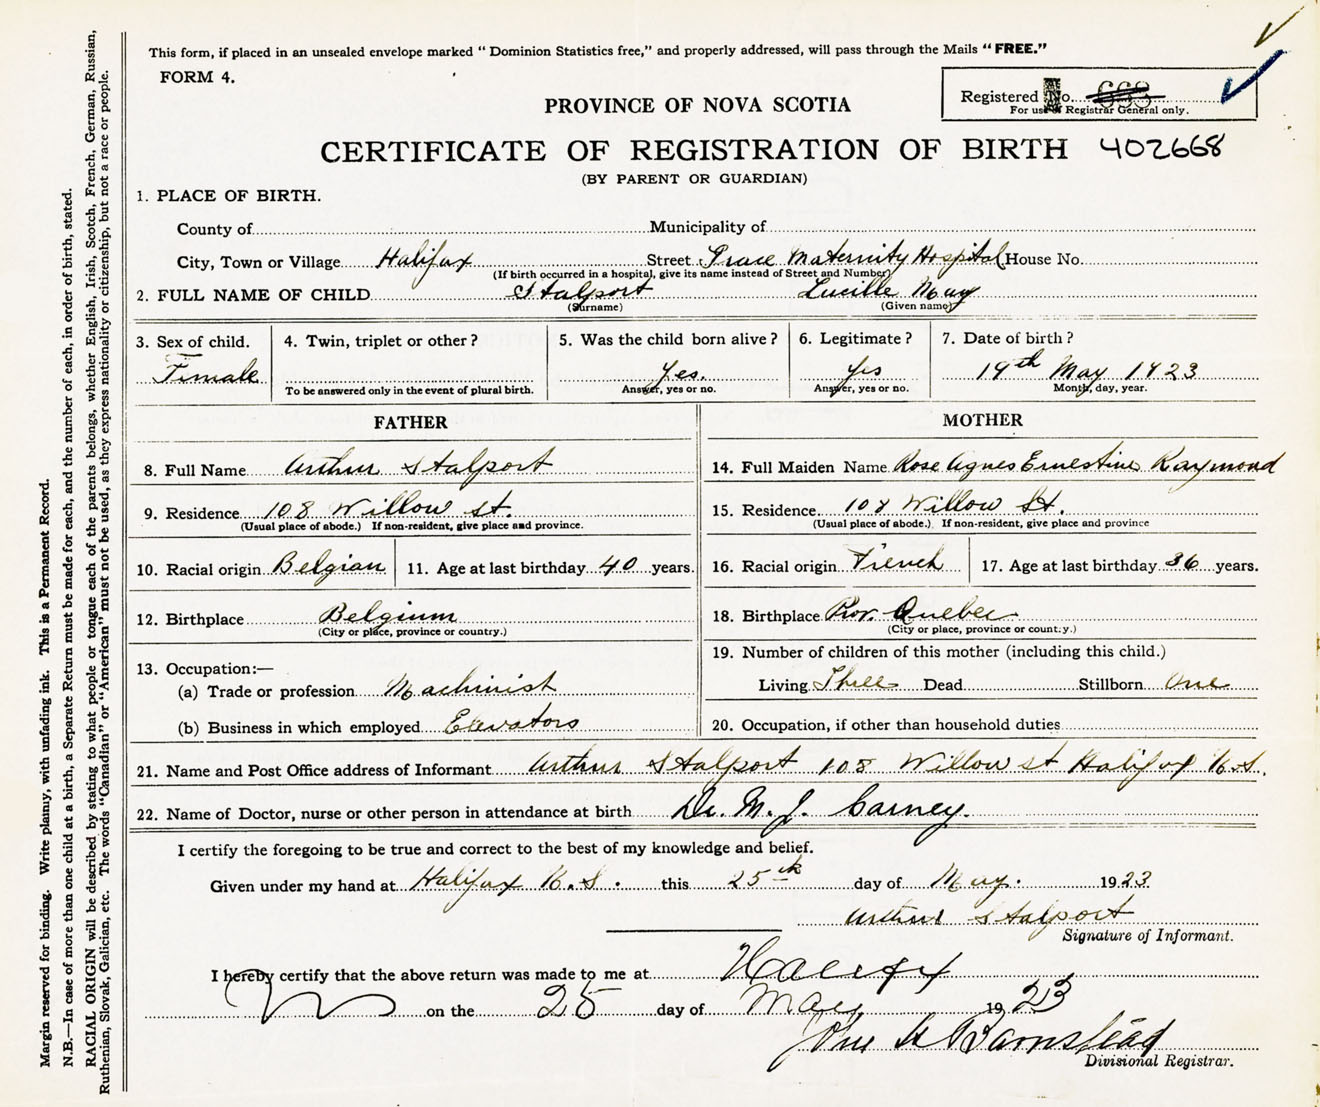 This form, if placed in an unsealed envelope marked "Dominion Statistics free," and properly addressed, will pass through the Mails "FREE."
FORM 4.
PROVINCE OF NOVA SCOTIA
Registered No. 668
For use of Registrar General only.
CERTIFICATE OF REGISTRATION OF BIRTH 402668
(BY PARENT OR GUARDIAN)
1. PLACE OF BIRTH.
County of Municipality of
City, Town or Village Halifax Street Grace Maternity Hospital House No.
(If birth occurred in a hospital, give its name instead of Street and Number)
2. FULL NAME OF CHILD Stalport Lucille May
(Surname) (Given name)
3. Sex of child. 4. Twin, triplet or other? 5. Was the child born alive? 6. Legitimate? 7. Date of birth?
Female Yes. Yes 19th May 1923
To be answered only in the event of plural birth. Answer, yes or no. Answer, yes or no. Month, day, year.
FATHER MOTHER
8. Full Name Arthur Stalport 14. Full Maiden Name Rose Agnes Ernestine Raymond
9. Residence 108 Willow St. 15. Residence. 108 Willow St.
(Usual place of abode.) If non-resident, give place and province. (Usual place of abode.) If non-resident, give place and province
10. Racial origin Belgian 11. Age at last birthday 40 years. 16. Racial origin French 17. Age at last birthday 36 years.
12. Birthplace Belgium 18. Birthplace Prov. Quebec
(City or place, province or country.) (City or place, province or country.)
13. Occupation:— 19. Number of children of this mother (including this child.)
(a) Trade or profession Machinist Living Three Dead Stillborn One
(b) Business in which employed Elevators 20. Occupation, if other than household duties
21. Name and Post Office address of Informant Arthur Stalport 108 Willow st Halifax N.S.
22. Name of Doctor, nurse or other person in attendance at birth Dr. M. J. Carney.
I certify the foregoing to be true and correct to the best of my knowledge and belief.
Given under my hand at Halifax N.S. this 25th day of May. 1923
Arthur Stalport
Signature of Informant.
I hereby certify that the above return was made to me at Halifax
on the 25 day of May 1923
John H Barnstead
Divisional Registrar.
Margin reserved for binding. Write plainly, with unfading ink. This is a Permanent Record.
N.B.—In case of more than one child at a birth, a Separate Return must be made for each, and the number of each, in order of birth, stated.
RACIAL ORIGIN will be described by stating to what people or tongue each of the parents belongs, whether English, Irish, Scotch, French, German, Russian,
Ruthenian, Slovak, Galician, etc. The words "Canadian" or "American" must not be used, as they express nationality or citizenship, but not a race or people.